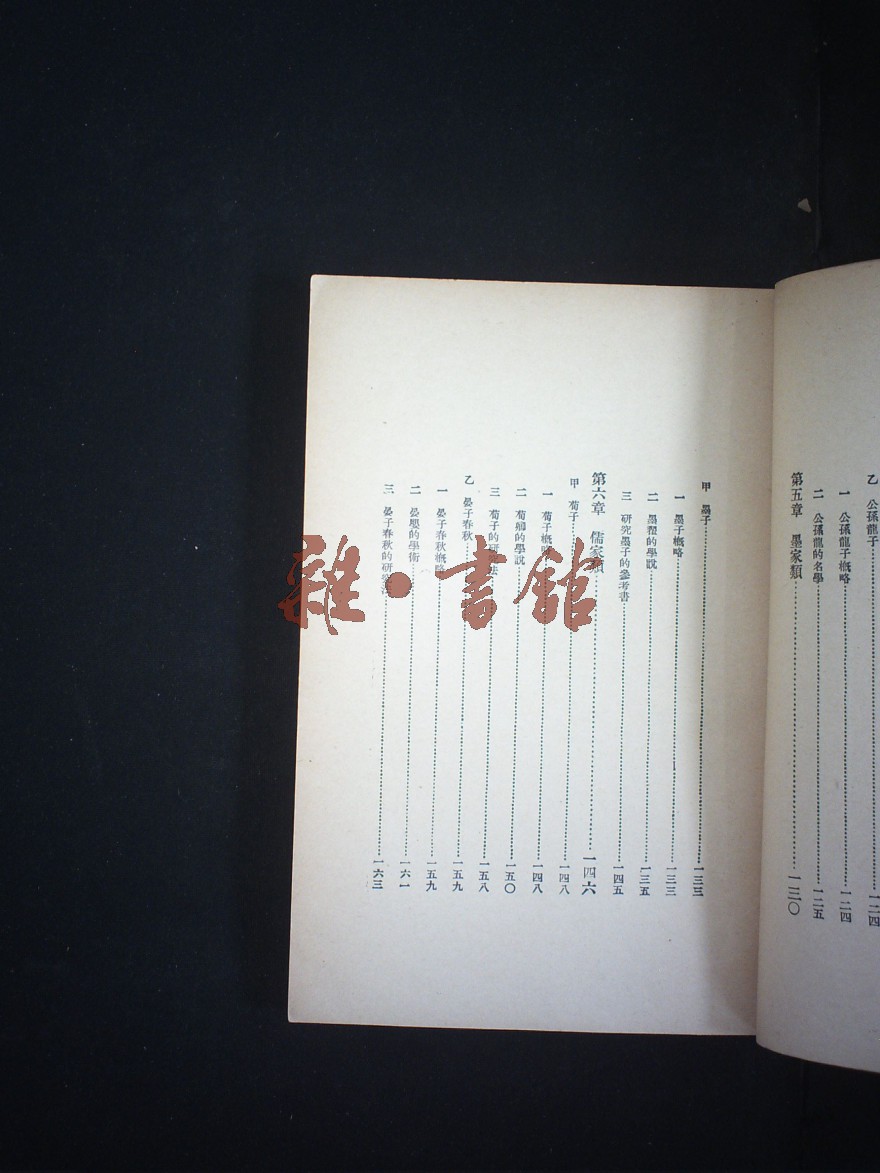 乙 公孫龍子……一二四
一 公孫龍子概略……一二四
二 公孫龍的名學……一二五
第五章 墨家類……一三〇
甲 墨子……一三三
一 墨子概略……一三三
二 墨翟的學說……一三五
三 研究墨子的參考書……一四五
第六章 儒家類……一四六
甲 荀子……一四八
一 荀子概略……一四八
二 荀卿的學說……一五〇
三 荀子的研究法……一五八
乙 晏子春秋……一五九
一 晏子春秋概略……一五九
二 晏嬰的學術……一六一
三 晏子春秋的研究……一六三
雜·書館